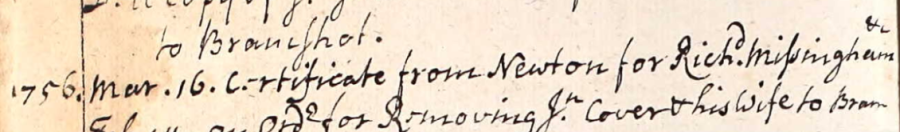 to Bramshot.
1756. Mar. 16. Certificate from Newton for Richd. Missingham &c
an Ordr for Removing Jn. Cover & his Wife to Bram